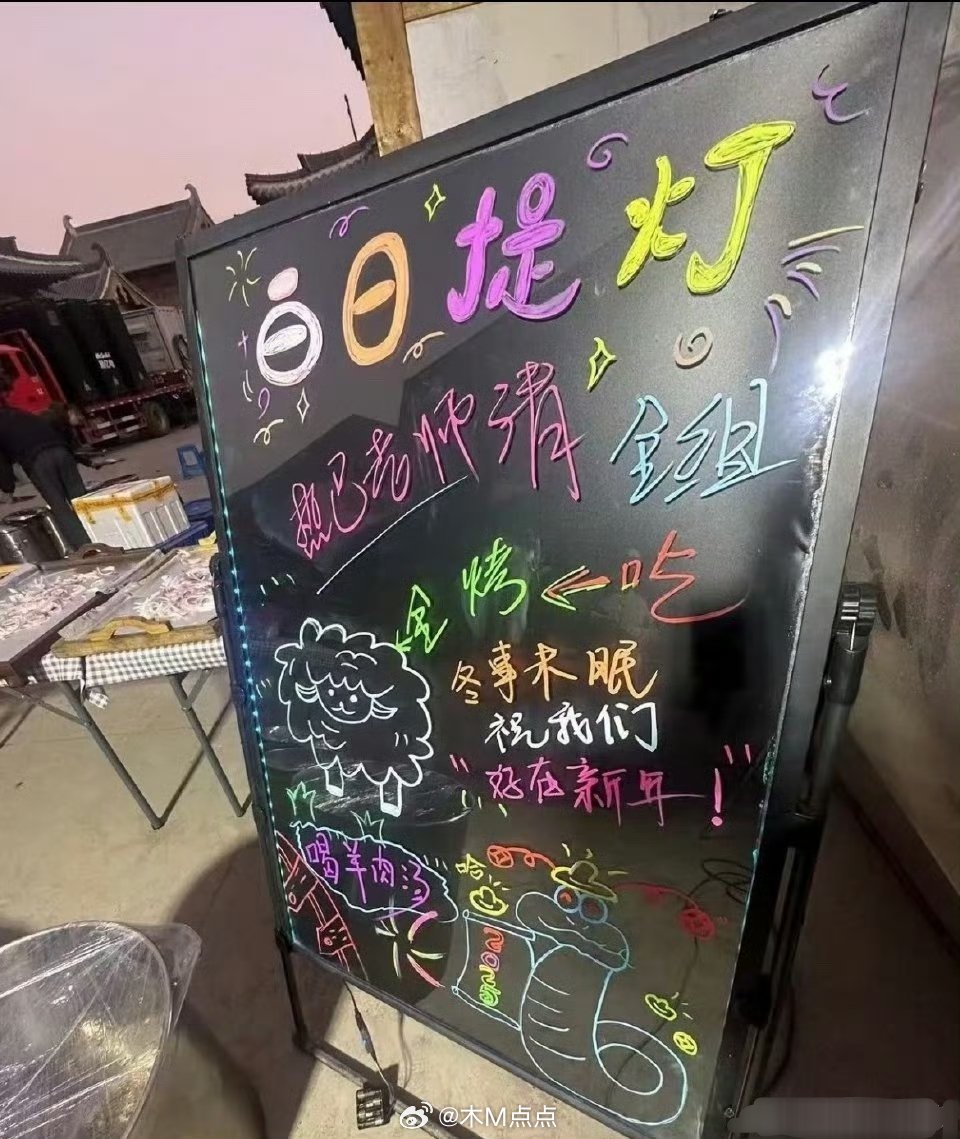 白日提灯
热巴老师请全组
吃←烤全
冬事未眠
祝我们
好在新年！
喝羊肉汤
哈
2025
@木M点点